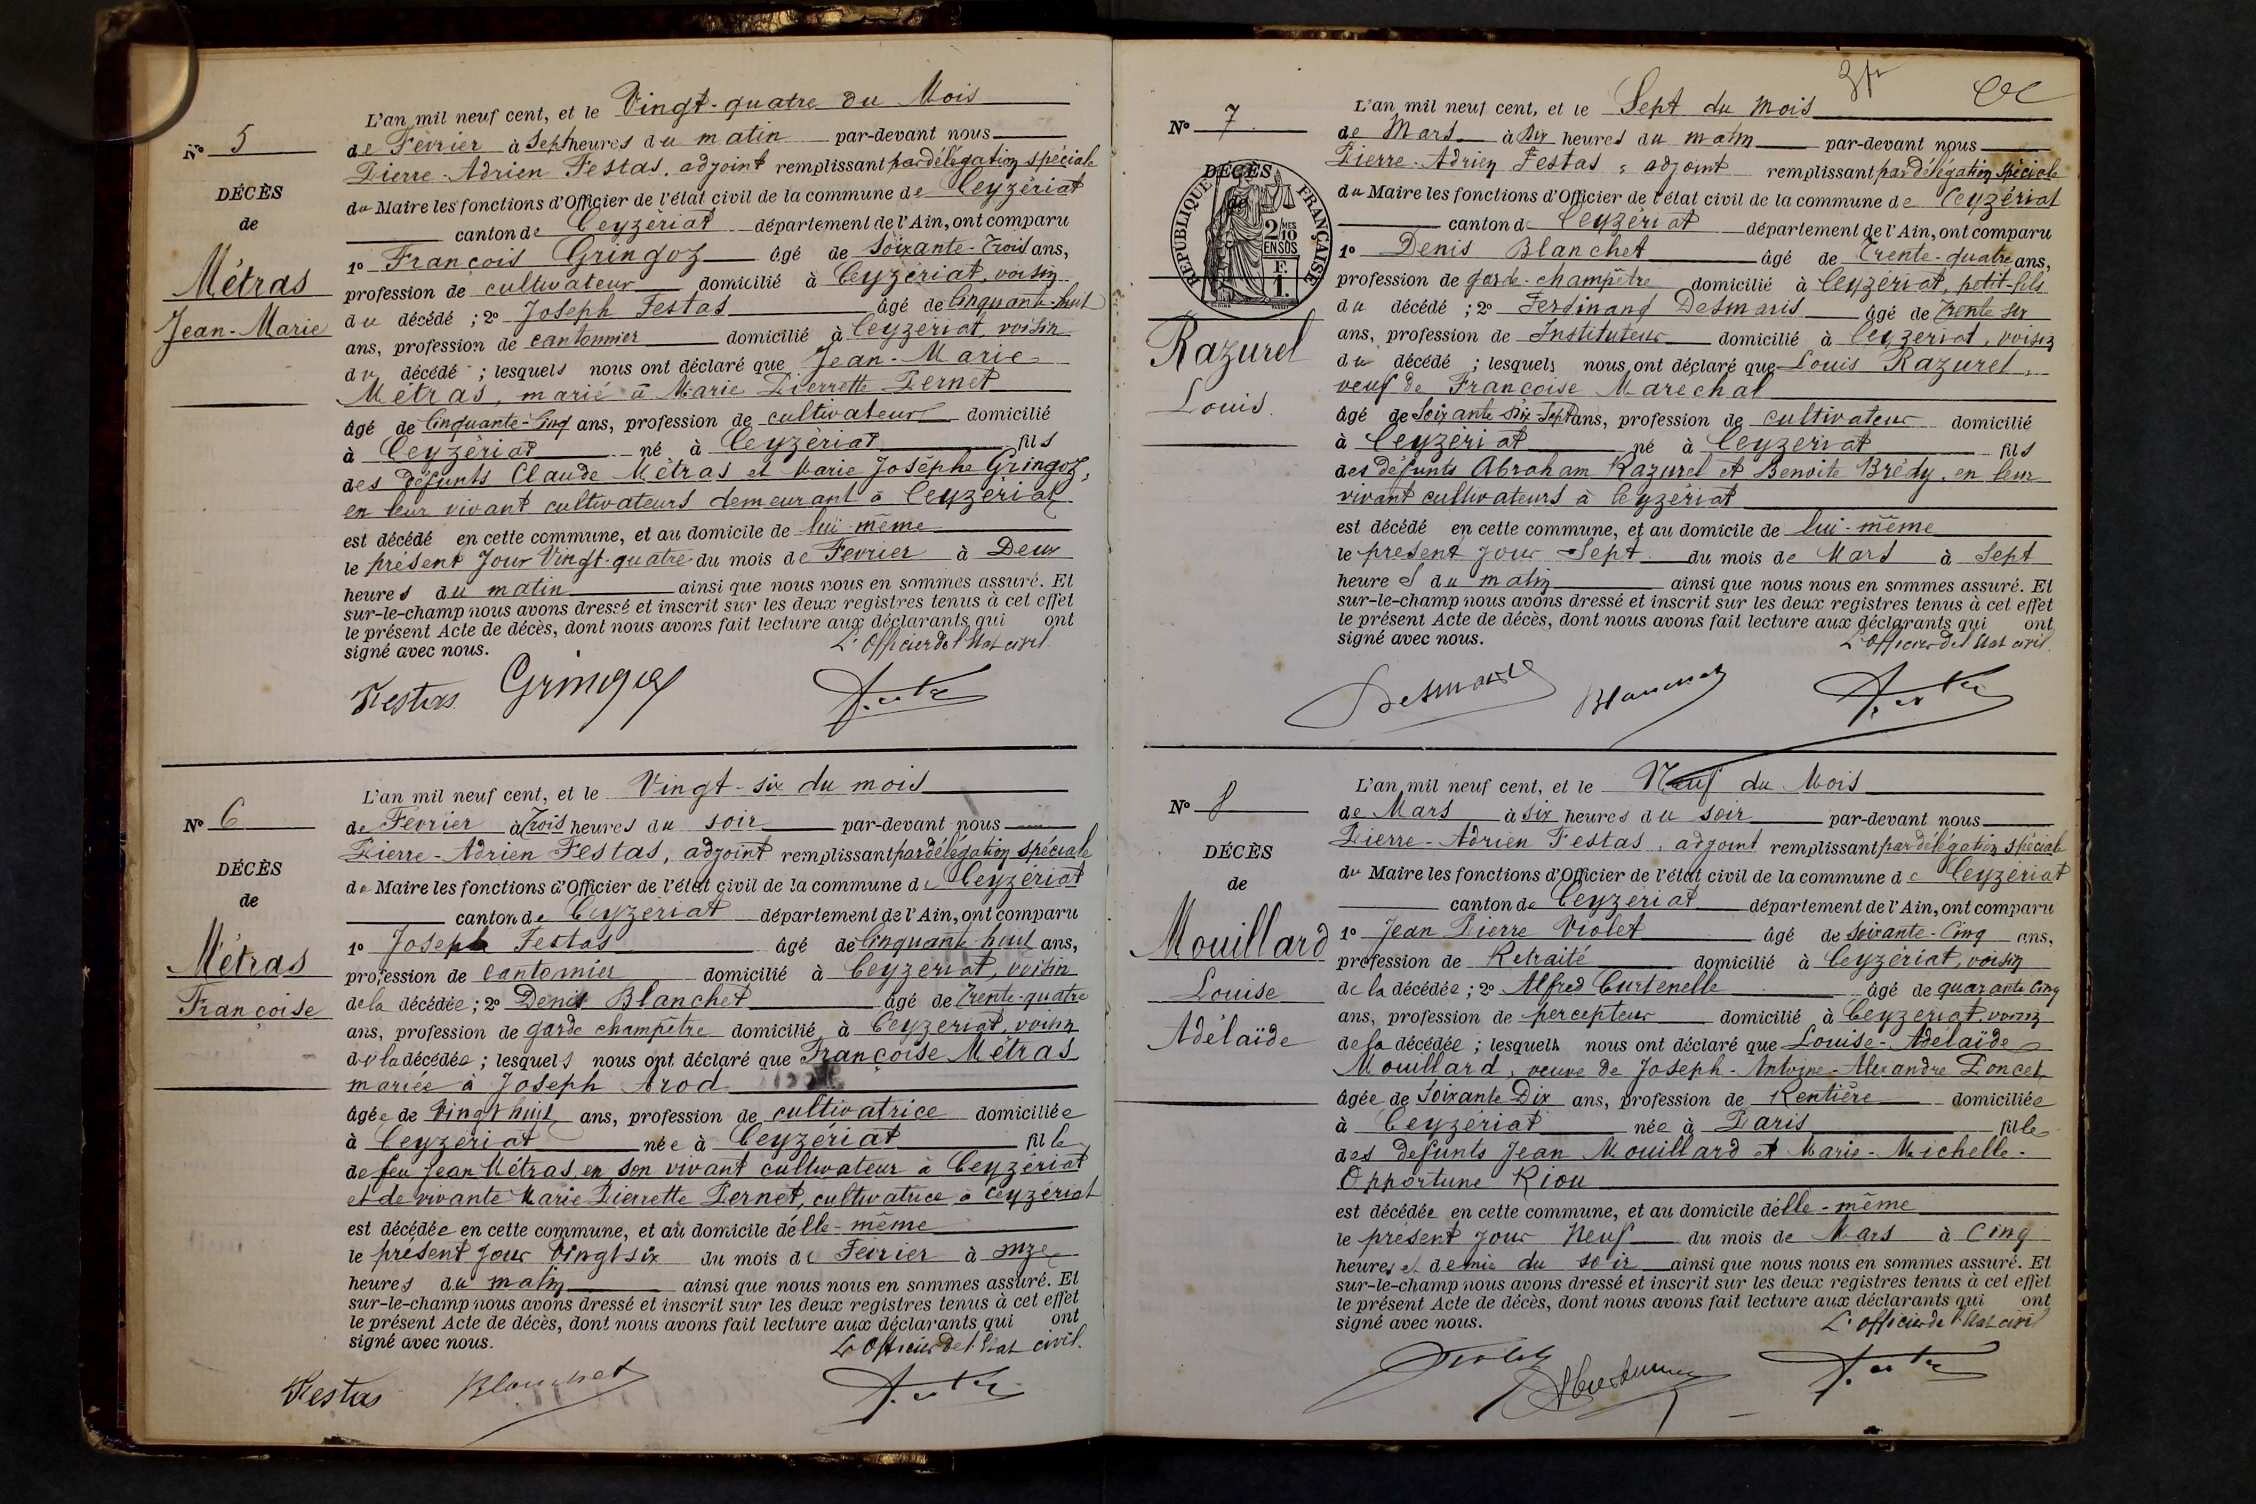 N° 5
DÉCÈS
de
Métras
Jean-Marie
L'an mil neuf cent, et le Vingt-quatre du Mois
de Février à Sept heures du matin par-devant nous
Pierre-Adrien Festas, adjoint remplissant par délégation spéciale
du Maire les fonctions d'Officier de l'état civil de la commune de Ceyzériat
canton de Ceyzériat département de l'Ain, ont comparu
1° François Gringoz âgé de Soixante-Trois ans,
profession de cultivateur domicilié à Ceyzériat, voisin
du décédé ; 2° Joseph Festas âgé de Cinquante-huit
ans, profession de cantonnier domicilié à Ceyzériat, voisin
du décédé ; lesquels nous ont déclaré que Jean-Marie
Métras, marié à Marie Pierrette Pernet
âgé de Cinquante-Cinq ans, profession de cultivateur domicilié
à Ceyzériat né à Ceyzériat fils
des défunts Claude Métras et Marie Josèphe Gringoz,
en leur vivant cultivateurs demeurant à Ceyzériat
est décédé en cette commune, et au domicile de lui-même
le présent Jour Vingt-quatre du mois de Février à Deux
heures du matin ainsi que nous nous en sommes assuré. Et
sur-le-champ nous avons dressé et inscrit sur les deux registres tenus à cet effet
le présent Acte de décès, dont nous avons fait lecture aux déclarants qui ont
signé avec nous. L'Officier de l'Etat civil.
Festas Gringoz
N° 6
DÉCÈS
de
Métras
Françoise
L'an mil neuf cent, et le Vingt-six du mois
de Février à Trois heures du soir par-devant nous
Pierre-Adrien Festas, adjoint remplissant par délégation spéciale
du Maire les fonctions d'Officier de l'état civil de la commune de Ceyzériat
canton de Ceyzériat département de l'Ain, ont comparu
1° Joseph Festas âgé de Cinquante-huit ans,
profession de Cantonnier domicilié à Ceyzériat, voisin
de la décédée ; 2° Denis Blanchet âgé de Trente-quatre
ans, profession de garde champêtre domicilié à Ceyzériat, voisin
de la décédée ; lesquels nous ont déclaré que Françoise Métras
mariée à Joseph Arod
âgée de Vingt huit ans, profession de cultivatrice domiciliée
à Ceyzériat née à Ceyzériat fille
de feu Jean Métras, en son vivant cultivateur à Ceyzériat
et de vivante Marie Pierrette Pernet, cultivatrice à Ceyzériat
est décédée en cette commune, et au domicile d'elle-même
le présent jour Vingt six du mois de Février à onze
heures du matin ainsi que nous nous en sommes assuré. Et
sur-le-champ nous avons dressé et inscrit sur les deux registres tenus à cet effet
le présent Acte de décès, dont nous avons fait lecture aux déclarants qui ont
signé avec nous. L'Officier de l'Etat civil.
Festas Blanchet
N° 7
DÉCÈS
de
RÉPUBLIQUE FRANÇAISE
2 MES
10
EN SUS
F.
1.
Razurel
Louis
L'an mil neuf cent, et le Sept du mois
de Mars à Dix heures du matin par-devant nous
Pierre-Adrien Festas, adjoint remplissant par délégation spéciale
du Maire les fonctions d'Officier de l'état civil de la commune de Ceyzériat
canton de Ceyzériat département de l'Ain, ont comparu
1° Denis Blanchet âgé de Trente-quatre ans,
profession de garde-champêtre domicilié à Ceyzériat, petit-fils
du décédé ; 2° Ferdinand Desmaris âgé de Trente six
ans, profession de Instituteur domicilié à Ceyzériat, voisin
du décédé ; lesquels nous ont déclaré que Louis Razurel,
veuf de Françoise Marechal
âgé de Soixante dix-Sept ans, profession de cultivateur domicilié
à Ceyzériat né à Ceyzériat fils
des défunts Abraham Razurel et Benoite Brédy, en leur
vivant cultivateurs à Ceyzériat
est décédé en cette commune, et au domicile de lui-même
le présent jour Sept du mois de Mars à Sept
heures du matin ainsi que nous nous en sommes assuré. Et
sur-le-champ nous avons dressé et inscrit sur les deux registres tenus à cet effet
le présent Acte de décès, dont nous avons fait lecture aux déclarants qui ont
signé avec nous. L'Officier de l'Etat civil.
Desmaris Blanchet
N° 8
DÉCÈS
de
Mouillard
Louise
Adélaïde
L'an mil neuf cent, et le Neuf du Mois
de Mars à six heures du soir par-devant nous
Pierre-Adrien Festas, adjoint remplissant par délégation spéciale
du Maire les fonctions d'Officier de l'état civil de la commune de Ceyzériat
canton de Ceyzériat département de l'Ain, ont comparu
1° Jean Pierre Violet âgé de soixante-Cinq ans,
profession de Retraité domicilié à Ceyzériat, voisin
de la décédée ; 2° Alfred Curtenelle âgé de quarante Cinq
ans, profession de percepteur domicilié à Ceyzériat, voisin
de la décédée ; lesquels nous ont déclaré que Louise-Adélaïde
Mouillard, veuve de Joseph-Antoine-Alexandre Poncet,
âgée de Soixante Dix ans, profession de Rentière domiciliée
à Ceyzériat née à Paris fille
des défunts Jean Mouillard et Marie-Michelle-
Opportune Riou
est décédée en cette commune, et au domicile d'elle-même
le présent jour Neuf du mois de Mars à Cinq
heures et demie du soir ainsi que nous nous en sommes assuré. Et
sur-le-champ nous avons dressé et inscrit sur les deux registres tenus à cet effet
le présent Acte de décès, dont nous avons fait lecture aux déclarants qui ont
signé avec nous. L'Officier de l'Etat civil
Violet